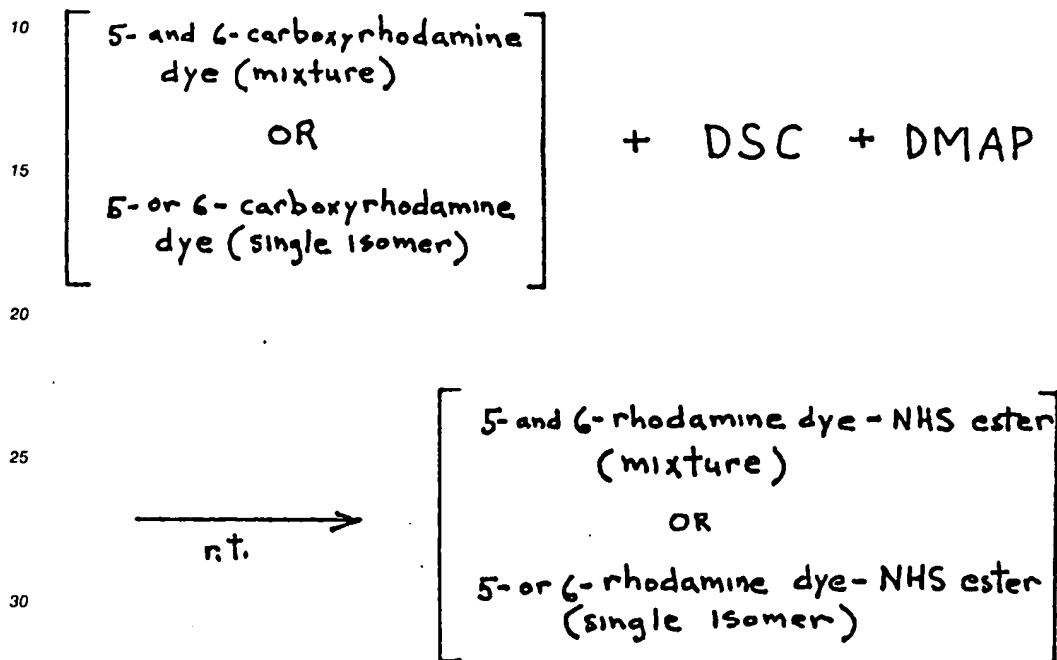 10
5- and 6-carboxyrhodamine
dye (mixture)
OR
15
5- or 6-carboxyrhodamine
dye (single isomer)
+ DSC + DMAP
20
5- and 6-rhodamine dye-NHS ester
25
(mixture)
r.t.
OR
30
5- or 6-rhodamine dye-NHS ester
(single isomer)